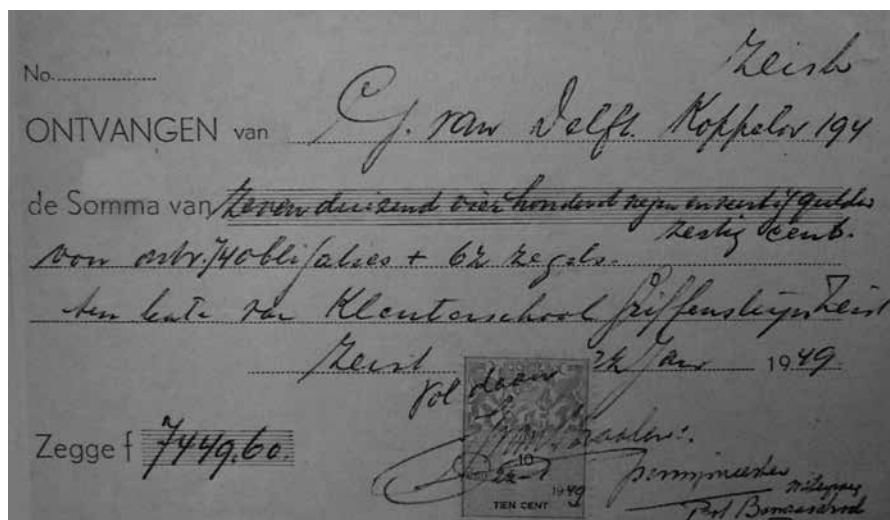 Zeist
No.
ONTVANGEN van C.J. van Delft. Koppelw 194
de Somma van zeven duizend vier honderd negen en veertig gulden
zestig cent.
voor ontv. 740 obligaties + 62 zegels.
ten bate van Kleuterschool Griffensteijn Zeist
Zeist 22 Jan 1949.
Vol daan
Zegge f 7449.60.
penningmeester
10
22-1
1949
TIEN CENT